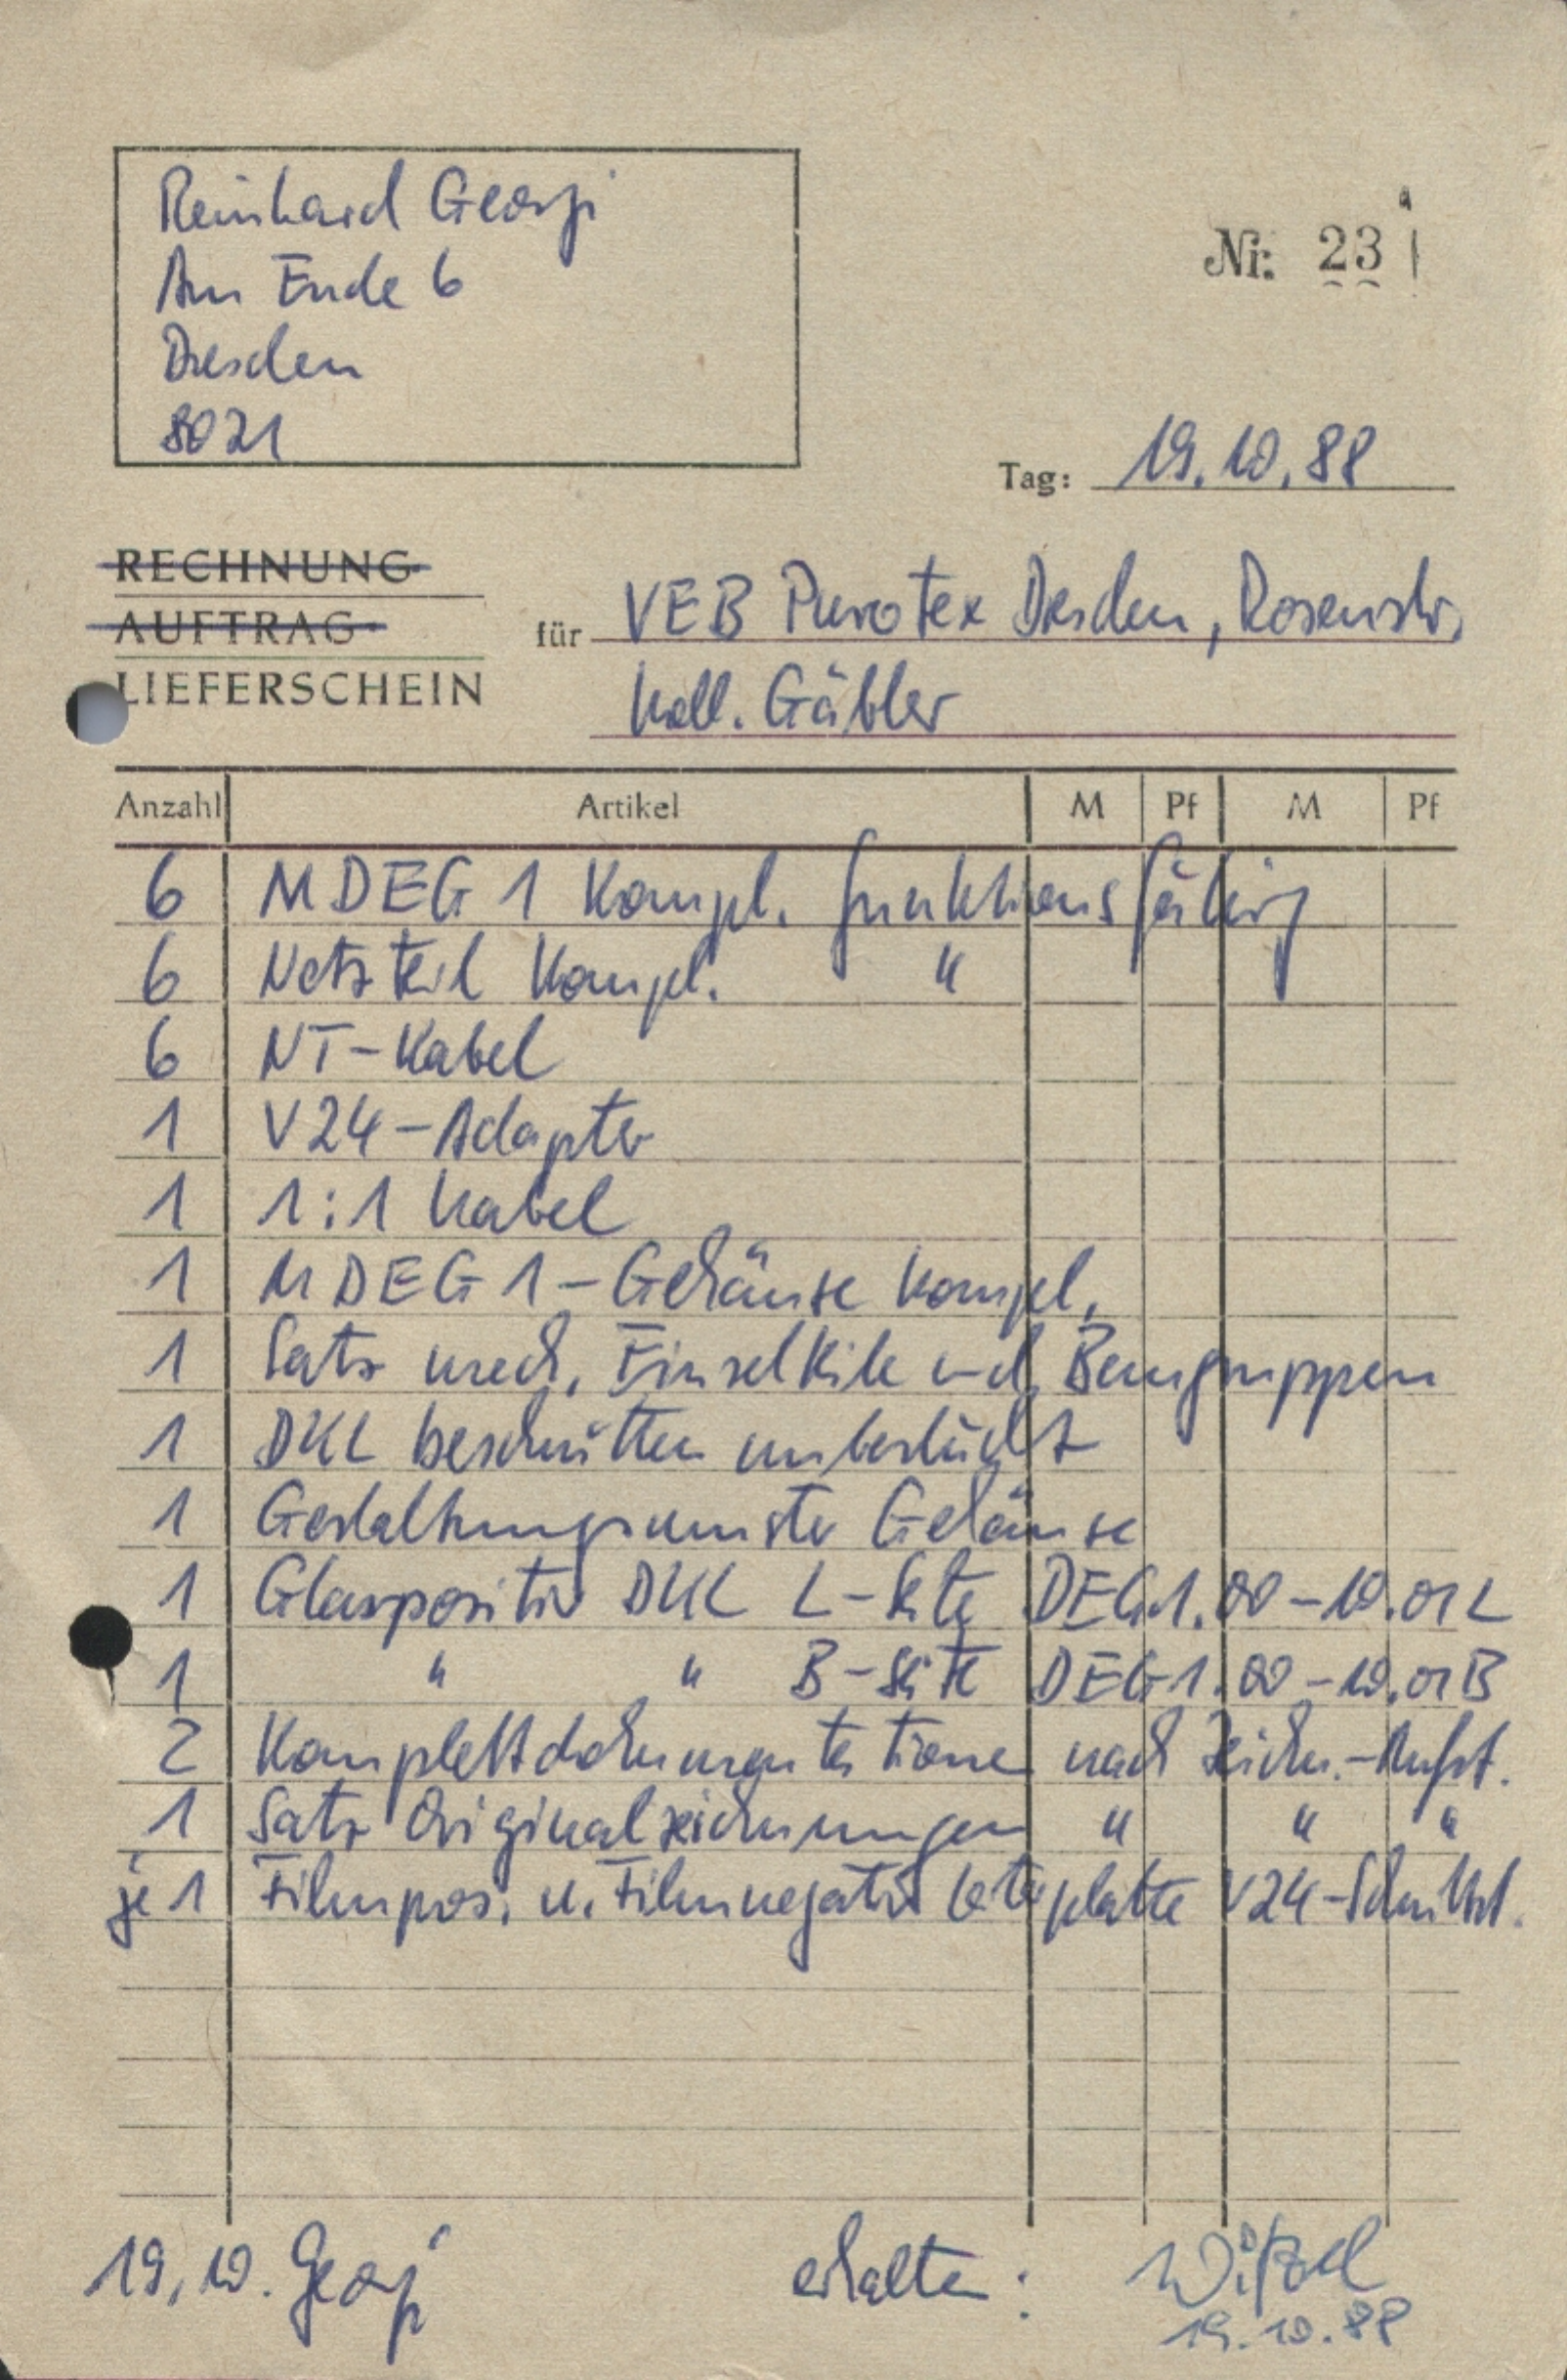 Reinhard Georgi
Am Ende 6
Dresden
8021
Nr. 23
Tag: 19.10.88
RECHNUNG
AUFTRAG
LIEFERSCHEIN
für VEB Purotex Dresden, Rosenstr.
Koll. Gäbler
Anzahl Artikel M Pf M Pf
6 MDEG 1 kompl. funktionsfähig
6 Netzteil kompl. "
6 NT-Kabel
1 V24-Adapter
1 1:1 Kabel
1 MDEG 1-Gehäuse kompl.
1 Satz mech. Einzelteile und Baugruppen
1 DKL beschnitten unbestückt
1 Gestaltungsmuster Gehäuse
1 Glaspositiv DKL L-Seite DEG1.00-10.01L
1 " " B-Seite DEG1.00-10.01B
2 Komplettdokumentationen nach Zeichn.-Aufst.
1 Satz Originalzeichnungen " " "
je 1 Filmpos. u. Filmnegativ Leiterplatte V24-Schnittst.
19.10. Georgi
erhalten:
19.10.88